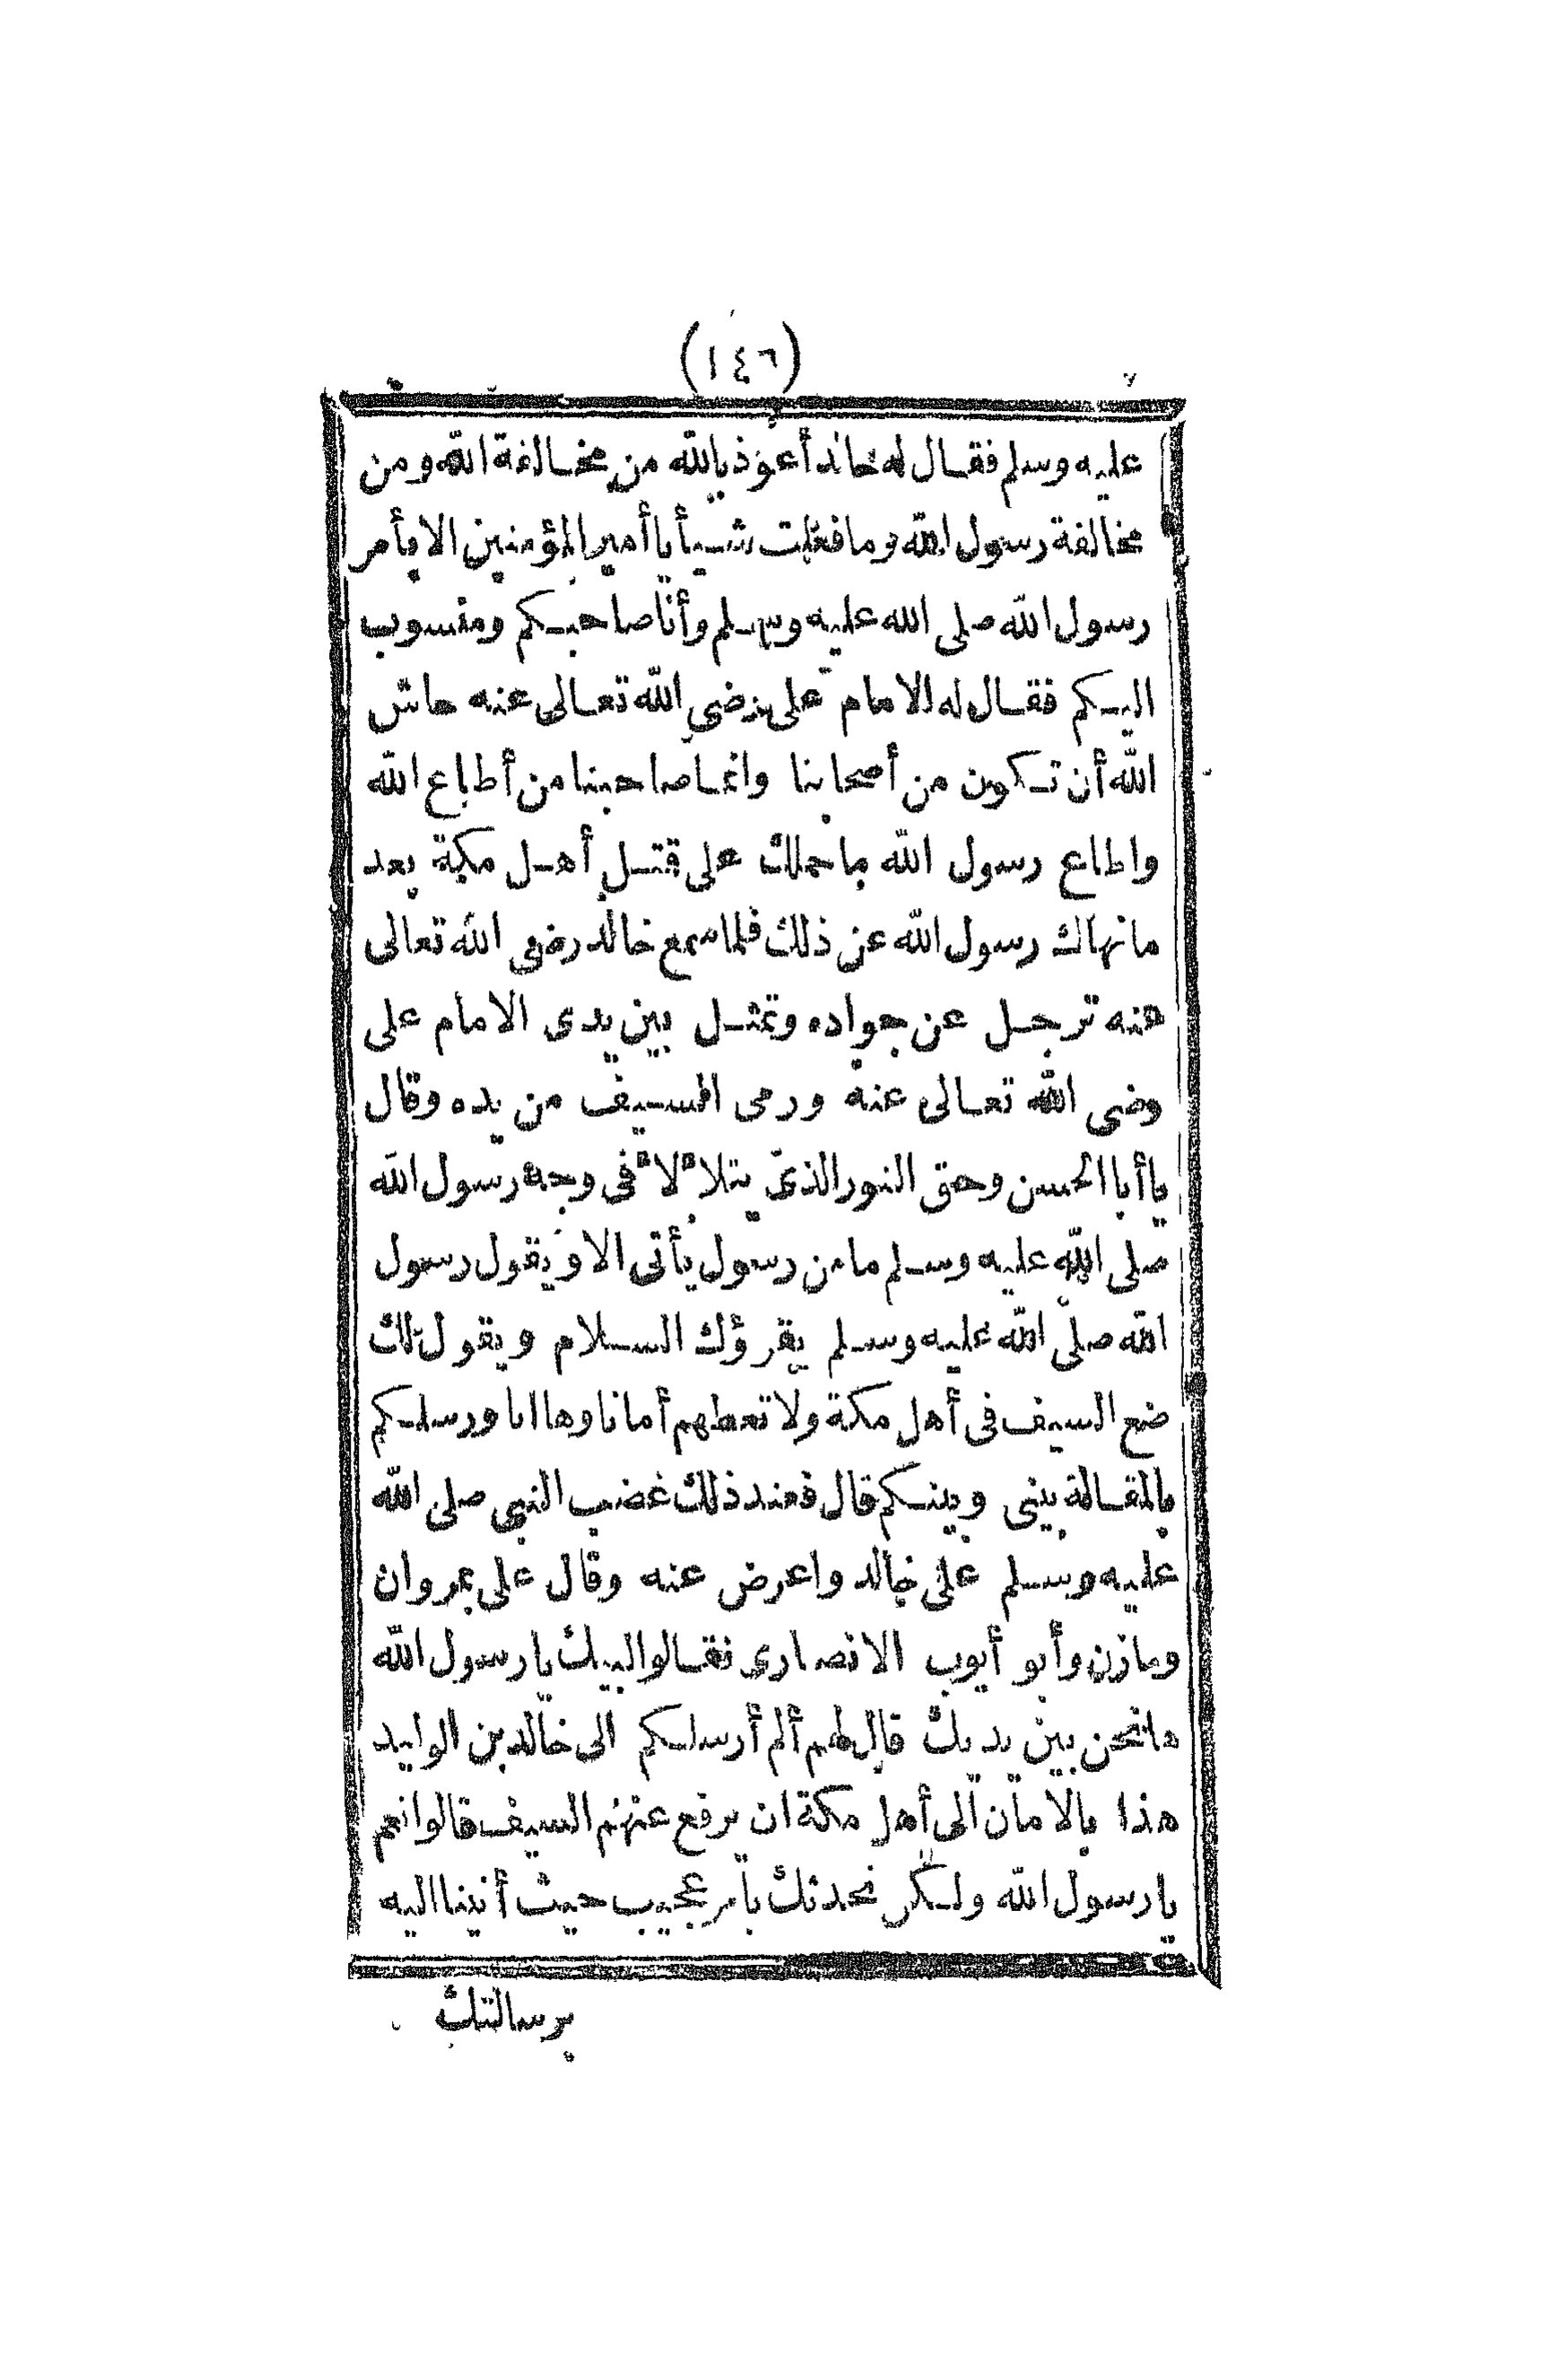 (١٤٦)
عليه وسلم فقال له خالد أعوذ بالله من مخالفة الله ومن
مخالفة رسول الله وما فعلت شيأ يا أمير المؤمنين الا بأمر
رسول الله صلى الله عليه وسلم وأنا صاحبكم ومنسوب
اليكم فقال له الامام على رضى الله تعالى عنه حاش
الله أن تكون من أصحابنا وانما صاحبنا من أطاع الله
واطاع رسول الله ما حملك على قتل أهل مكة بعد
ما نهاك رسول الله عن ذلك فلما سمع خالد رضى الله تعالى
عنه ترجل عن جواده وتمثل بين يدى الامام على
رضى الله تعالى عنه ورمى السيف من يده وقال
يا أبا الحسن وحق النور الذى يتلألأ فى وجه رسول الله
صلى الله عليه وسلم ما من رسول يأتى الا ويقول رسول
الله صلى الله عليه وسلم يقرؤك السلام ويقول لك
ضع السيف فى أهل مكة ولا تعطهم أمانا وها انا ورسلكم
بالمقالة بينى وبينكم قال فعند ذلك غضب النبى صلى الله
عليه وسلم على خالد واعرض عنه وقال على بمروان
ومازن وأبو أيوب الانصارى فقالوا لبيك يا رسول الله
ها نحن بين يديك قال لهم ألم أرسلكم الى خالد بن الوليد
هذا بالامان الى أهل مكة ان يرفع عنهم السيف قالوا نعم
يا رسول الله ولكن نحدثك بأمر عجيب حيث أتينا اليه
برسالتك